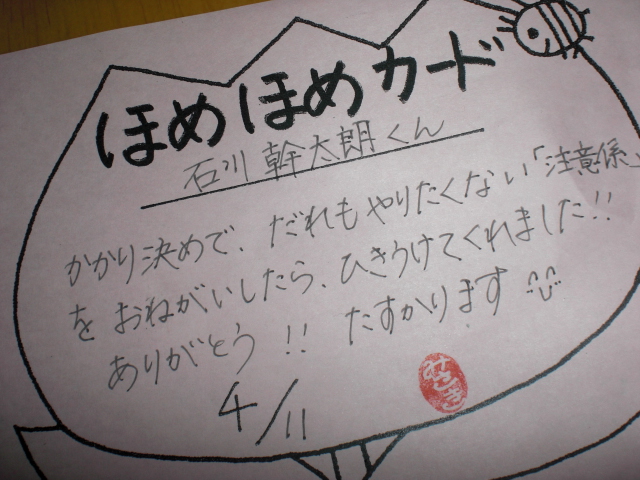 ほめほめカード
石川 幹太朗くん
かかり決めで、だれもやりたくない「注意係」
をおねがいしたら、ひきうけてくれました!!
ありがとう!! たすかります
4/11
みさき